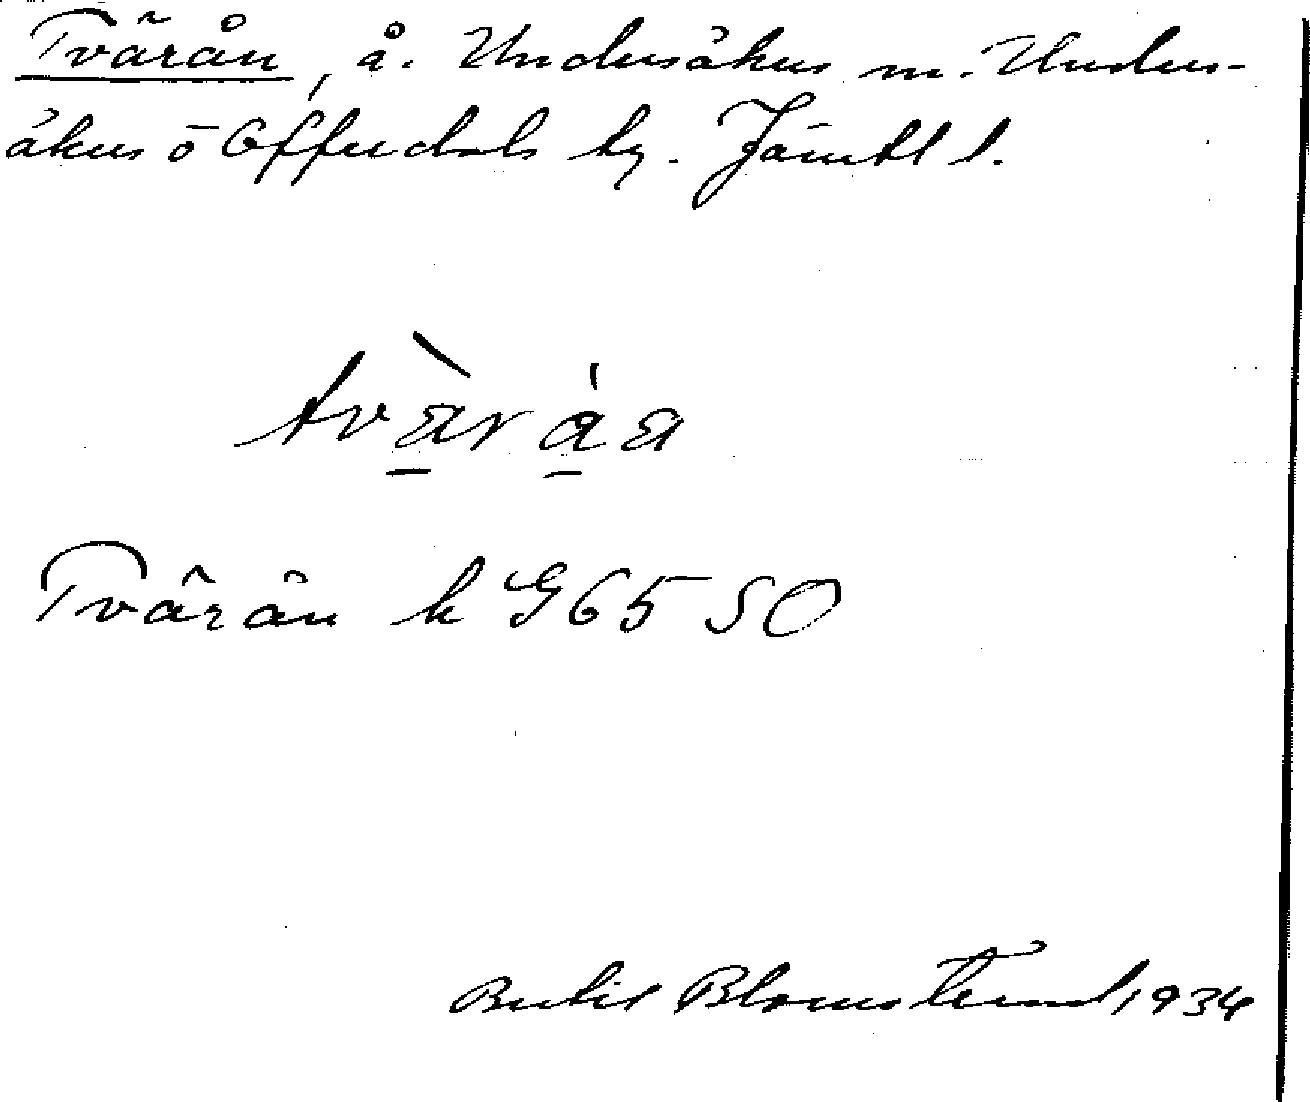 Tvärån, å. Undersåkers m. Unders-
åkers o Offerdals tg. Jämtl l.
tvä̀råa
Tvärån k G65 SO
Bertil Blomstrand 1934